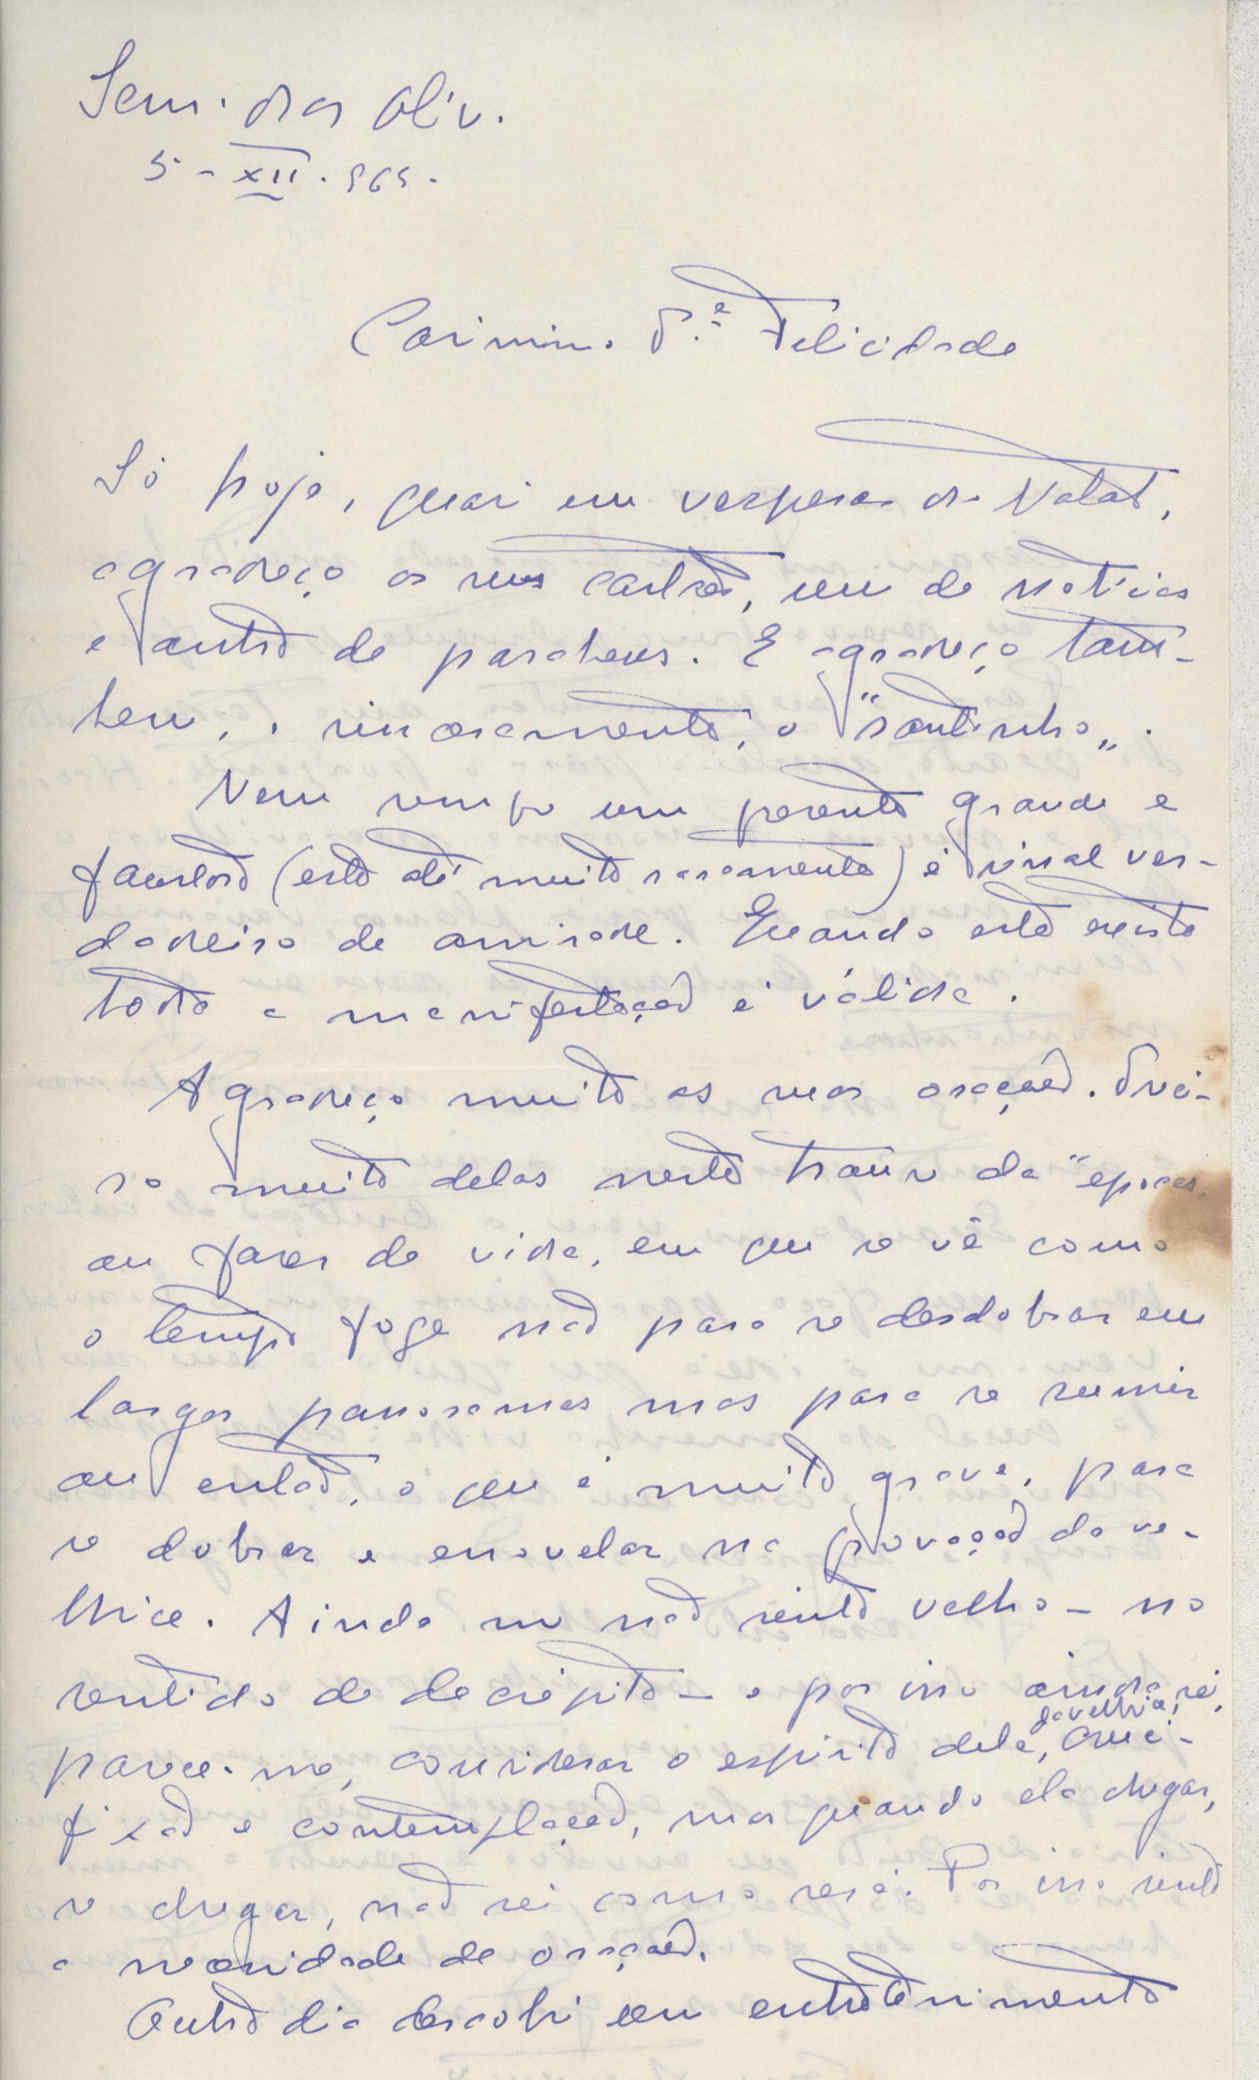 Sem. dos Oliv.
5-XII.965.
Caríssim. D.ª Felicidade
Só hoje, quasi em vesperas do Natal,
agradeço os seus cartões, um de noticias
e outro de parabens. E agradeço tam-
bem, sinceramente, o "santinho".
Nem sempre um presente grande e
faustoso (este até muito raramente) é sinal ver-
dadeiro de amisade. Quando esta existe
toda a manifestação é válida.
Agradeço muito as suas orações. Preci-
so muito delas nesta transe de "epocas"
ou fases de vida, em que se vê como
o tempo foge não para se desdobrar em
largos panoramas mas para se sumir
ou então, o que é muito grave, para
se dobrar e enovelar na provação da ve-
lhice. Ainda me não sinto velho - no
sentido de decrépito - e por isso ainda sei,
parece-me, considerar o espirito dela, da velhice, cruci-
fixão e contemplação, mas quando ela chegar,
se chegar, não sei como será. Por isso sinto
a necessidade de orações.
Outro dia descobri um entretenimento